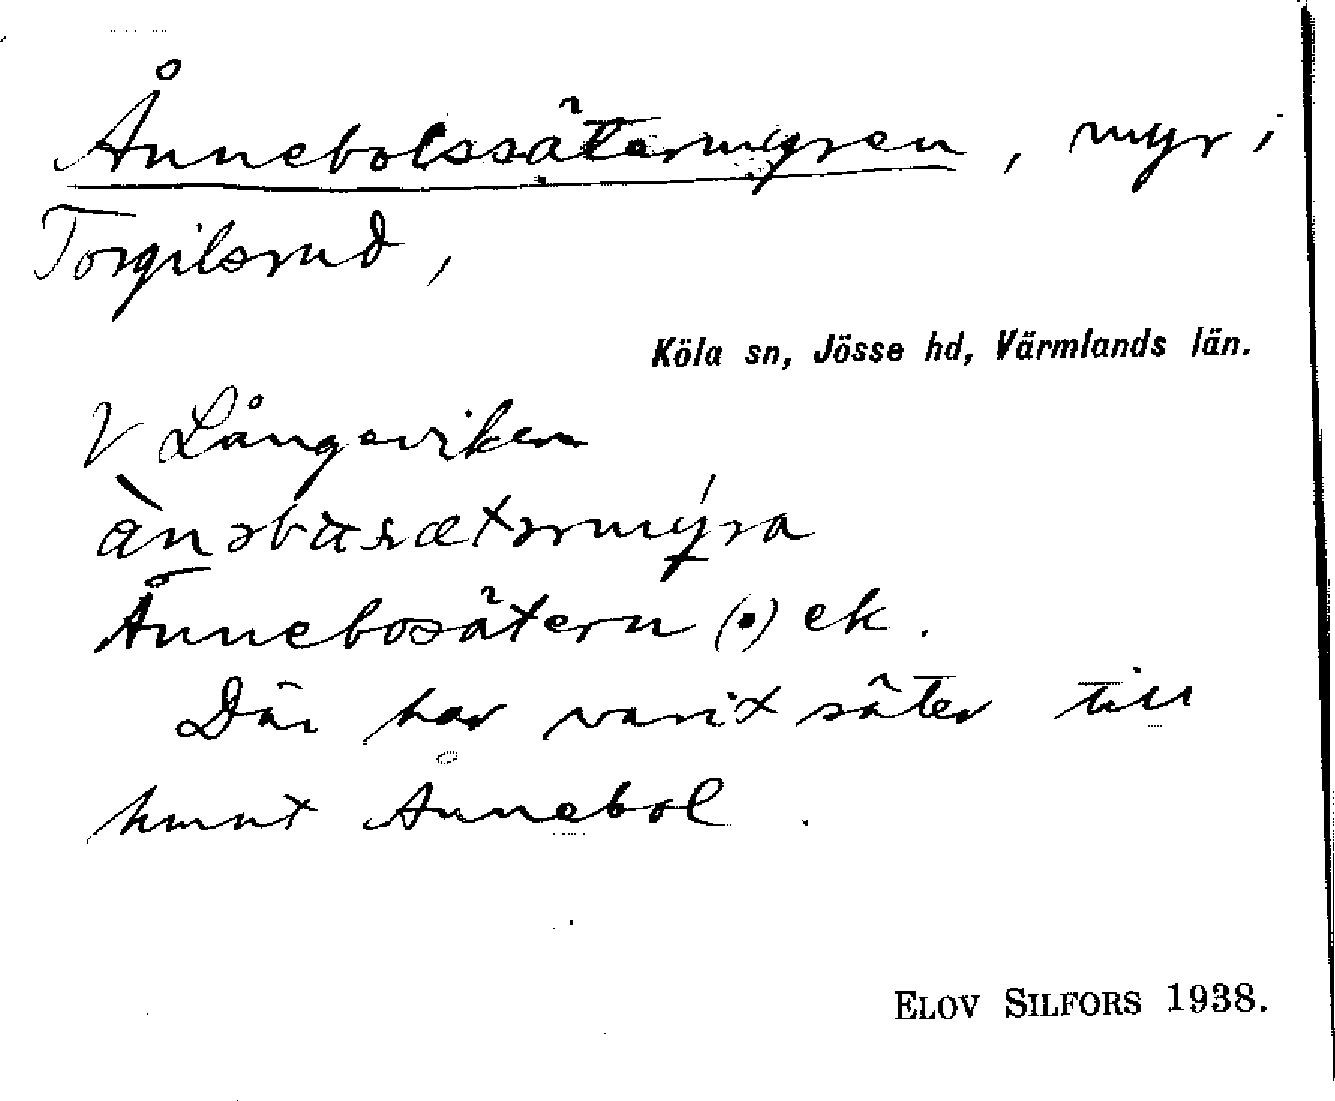 Ånnebolssätermyren, myr i
Torgilsrud,
Köla sn, Jösse hd, Värmlands län.
V Långeviken
Ånnebosätern (•) ek.
Där har varit säter till
hmnt Ånnebol.
ELOV SILFORS 1938.